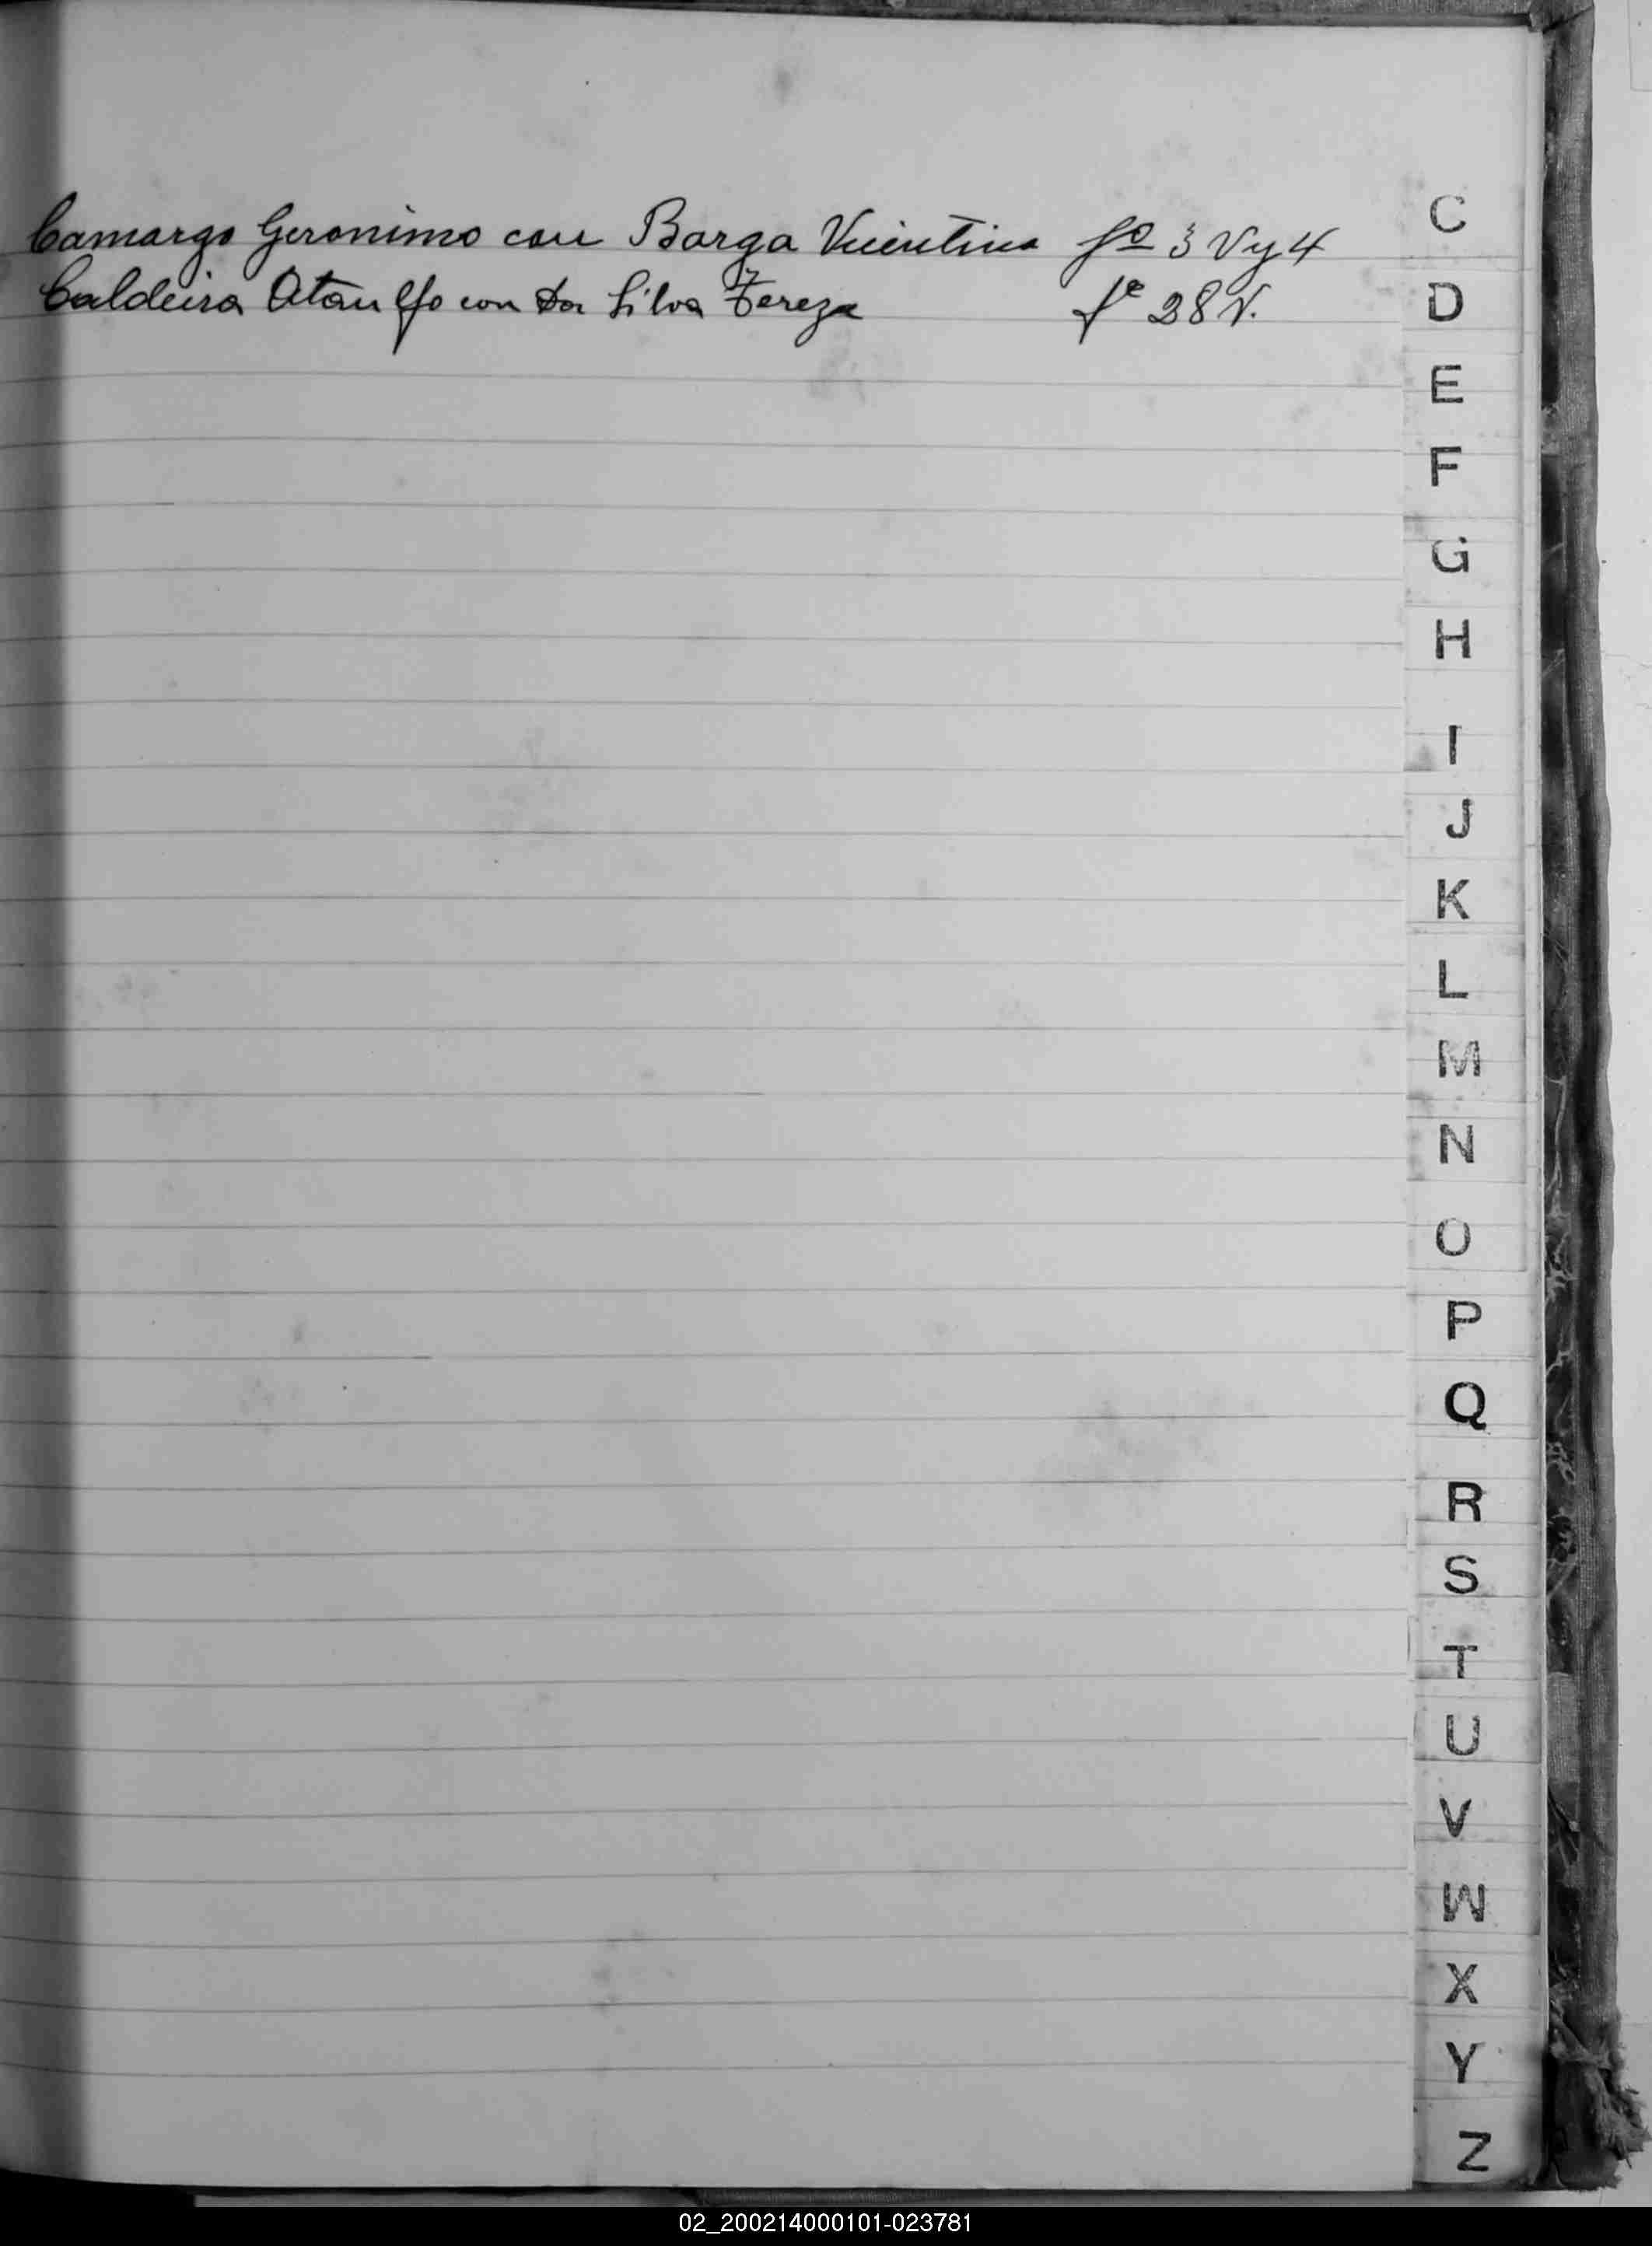 Camargo Geronimo con Barga Vicentina fº 3 V y 4
Caldeira Ataulfo con Da Silva Tereza fº 28 V.
C
D
E
F
G
H
I
J
K
L
M
N
O
P
Q
R
S
T
U
V
W
X
Y
Z
02_200214000101-023781